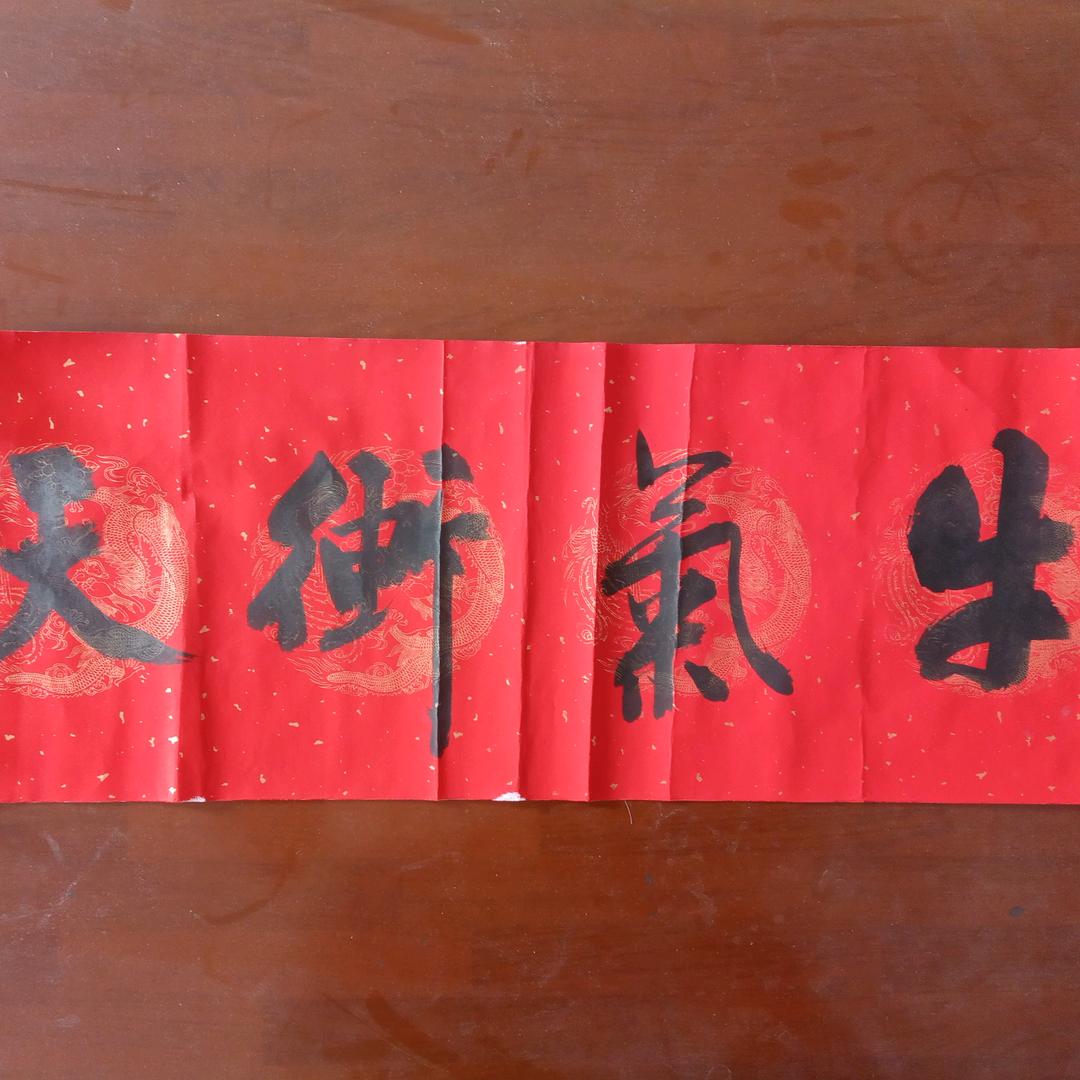 牛氣衝天